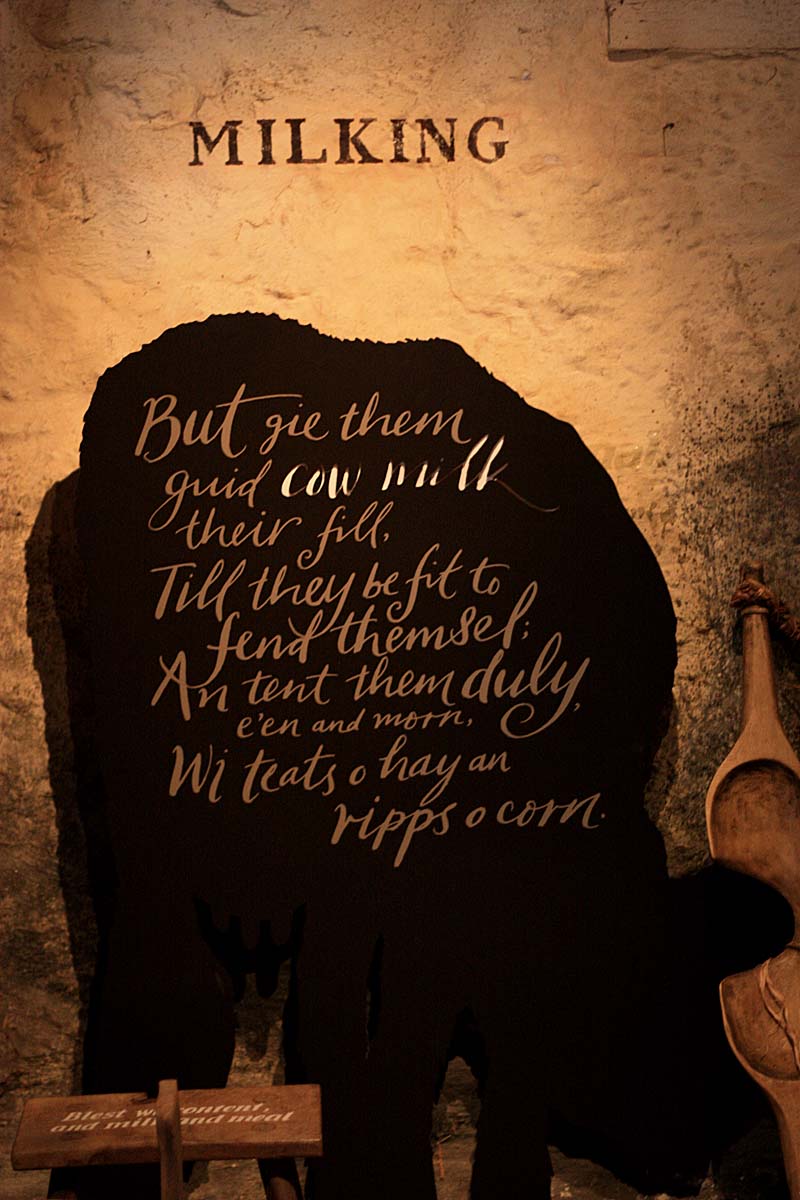 MILKING
But gie them
guid cow milk
their fill,
Till they be fit to
fend themsel;
An tent them duly,
e'en and morn,
Wi teats o hay an
ripps o corn.
Blest content,
and milk and meal